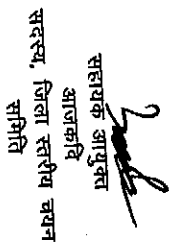 सहायक आयुक्त
आजकवि
सदस्य, जिला स्तरीय चयन
समिति